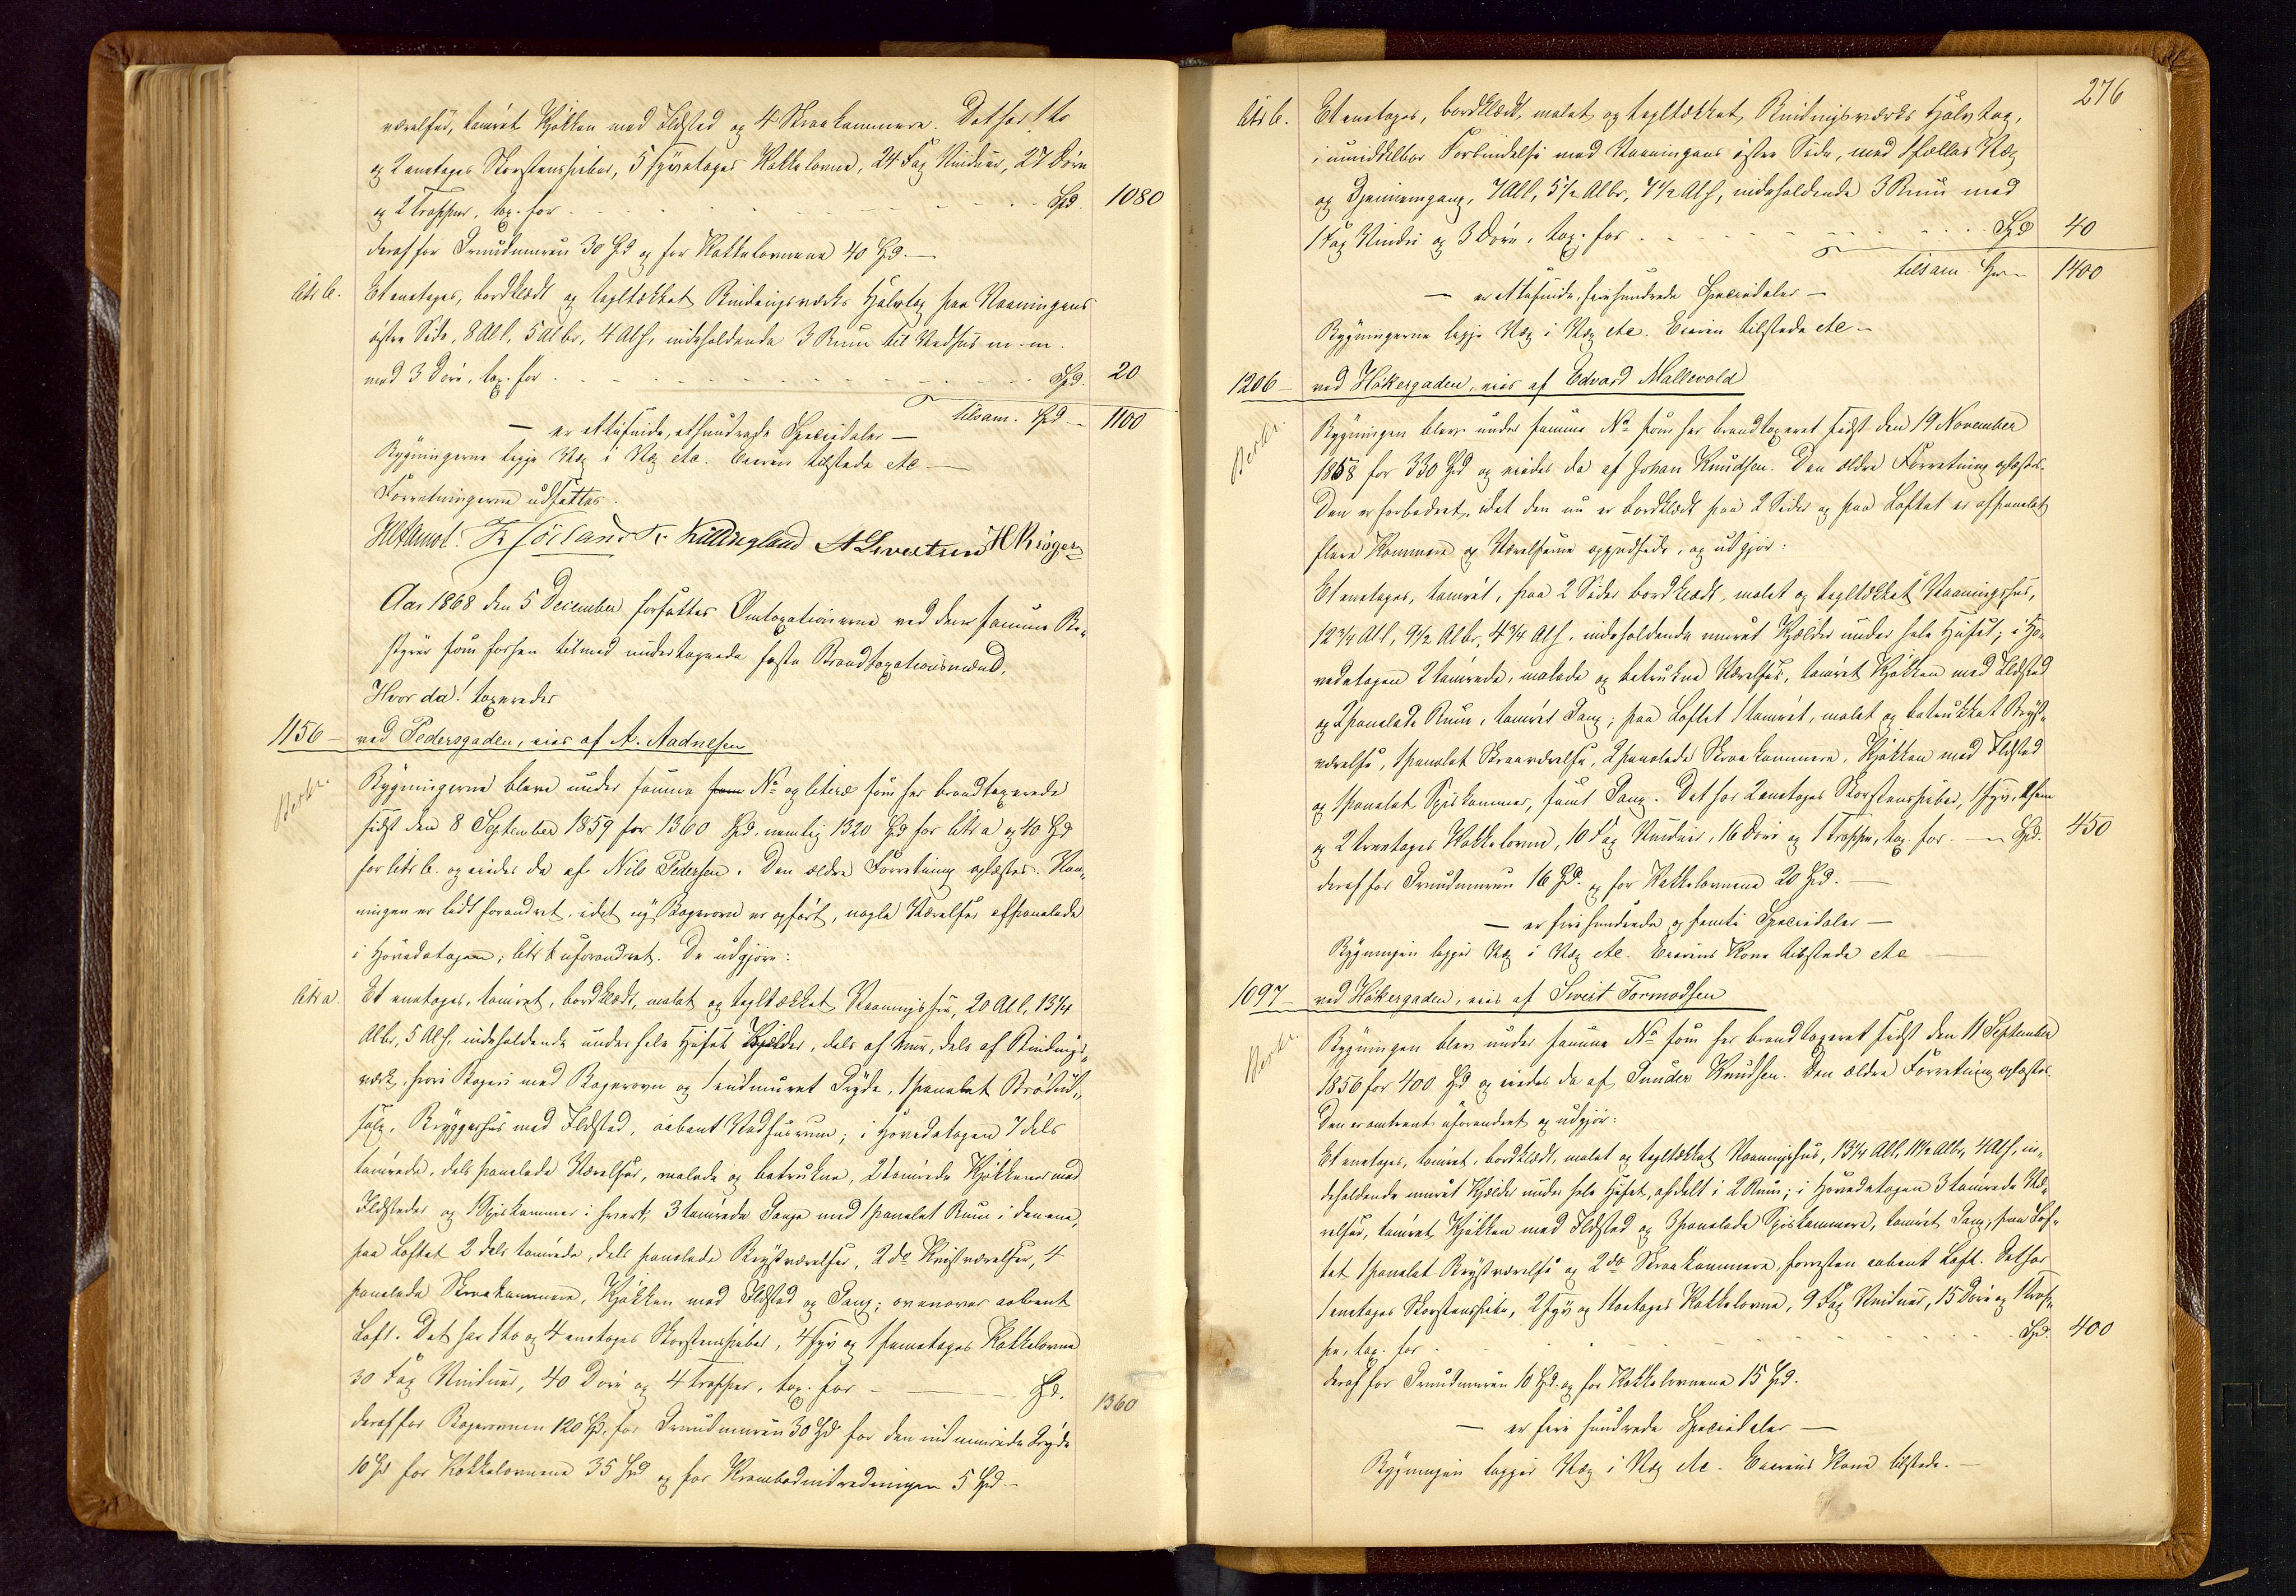 værelser, tømret Kjøkken med Ildsted og 4 Skraakammere. Det har 1 to
og 2 enetages Skorstenspiber, 5 fyretages Kakkelovne, 24 Fag Vinduer, 27 Døre
og 2 Trapper, tax. for Spd. 1080
deraf for Grundmuren 30 Spd og for Kakkelovnene 40 Spd.—
Litr b. Et enetages, bordklædt og tegltækket Bindingsværks Halvtag paa Vaaningens
østre Side, 8 Al l, 5 Al br, 4 Al h, indeholdende 3 Rum til Vedhus m.m.
med 3 Døre, tax. for Spd. 20
tilsam. Spd — 1100
— er ettusinde, ethundrede Speciedaler —
Bygningerne ligge Væg i Væg etc. Eieren tilstede etc.—
Forretningerne udsattes.
Killingland A Sivertsen H Krøger
Aar 1868 den 5 December fortsattes Omtaxationerne ved den samme Be„
styrer som forhen tilmed undertegnede faste Brandtaxationsmænd.
Hvor da! taxeredes
1156 — ved Pedersgaden, eies af A. Aadnesen
Bygningerne bleve under samme No og litera som her brandtaxerede
sidst den 8 September 1859 for 1360 Spd, nemlig 1320 Spd for litr a og 40 Spd
for litr b. og eiedes da af Nils Pedersen. Den ældre Forretning oplæstes. Vaa„
ningen er lidt forandret, idet ny Bagerovn er opført, nogle Værelser afpanelede
i Hovedetagen; litr b uforandret. De udgjøre:
Litr a. Et enetages, tømret, bordklædt, malet og tegltækket Vaaningshus, 20 Al l, 13 1/4
Al br, 5 Al h, indeholdende under hele Huset Kjelder, dels af Mur, dels af Bindings„
værk, hvori Bageri med Bagerovn og 1 indmuret Gryde, 1 panelet Brødud„
salg, Bryggerhus med Ildsted, aabent Vedhusrum; i Hovedetagen 7 dels
tømrede, dels panelede Værelser, malede og betrukne, 2 tømrede Kjøkkener med
Ildsteder og 1 Spiskammer i hvert, 3 tømrede Gange med 1 panelet Rum i den ene,
paa Loftet 2 dels tømrede, dels panelede Brystværelser, 2 do Kvistværelser, 4
panelede Skraakammere, Kjøkken med Ildsted og Gang; ovenover aabent
Loft. Det har 1 to og 4 enetages Skorstenspiber, 4 fyr og 1 femetages Kakkelovne
30 Fag Vinduer, 40 Døre og 4 Trapper, tax. for — Spd. 1360
deraf for Bagerovnen 120 Spd, for Grundmuren 30 Spd for den indmurede Gryde
10 Spd for Kakkelovnene 35 Spd og for Krambodindredningen 5 Spd —
276
Litr b. Et enetages, bordklædt, malet og tegltækket Bindingsværks Halvtag,
i umiddelbar Forbindelse med Vaaningens østre Side, med fælles Væg
og Gjennemgang, 7 Al l, 5 1/2 Al br, 4 1/2 Al h, indeholdende 3 Rum med
1 Fag Vindu og 3 Døre, tax. for Spd 40
tilsam. Spd — 1400
— er ettusinde, firehundrede Speciedaler —
Bygningerne ligge Væg i Væg etc. Eieren tilstede etc —
1206 — ved Høkergaden, eies af Edvard Mallevold
Bygningen blev under samme No som her brandtaxeret sidst den 19 November
1868 for 330 Spd og eiedes da af Johan Knudsen. Den ældre Forretning oplæstes.
Den er forbedret, idet den nu er bordklædt paa 2 Sider og paa Loftet er afpanelet
flere Kammere og Værelserne oppudsede, og udgjør:
Et enetages, tømret, paa 2 Sider bordklædt, malet og tegltækket Vaaningshus,
12 3/4 Al l, 9 1/2 Al br, 4 3/4 Al h, indeholdende muret Kjelder under hele Huset; i Ho„
vedetagen 2 tømrede, malede og betrukne Værelser, tømret Kjøkken med Ildsted
og 2 panelede Rum, tømret Gang; paa Loftet 1 tømret, malet og betrukket Bryst„
værelse, 1 panelet Skraaværelse, 2 panelede Skraakammere, Kjøkken med Ildsted
og 1 panelet Spiskammer, samt Gang. Det har 2 enetages Skorstenspiber, 1 fyr, 1 fem
og 2 treetages Kakkelovne, 10 Fag Vinduer, 16 Døre og 1 Trappe, tax. for — Spd. 450
deraf for Grundmuren 16 Spd. og for Kakkelovnene 20 Spd. —
— er firehundrede og femti Speciedaler —
Bygningen ligger Væg i Væg etc. Eierens Kone tilstede etc —
1097 — ved Høkergaden, eies af Sivert Tormodsen
Bygningen blev under samme No som her brandtaxeret sidst den 11 September
1856 for 400 Spd og eiedes da af Gunder Knudsen. Den ældre Forretning oplæstes.
Den er omtrent uforandret og udgjør:
Et enetages, tømret, bordklædt, malet og tegltækket Vaaningshus, 13 1/4 Al l, 11 1/2 Al br, 4 Al h, in„
deholdende muret Kjelder under hele Huset, afdelt i 2 Rum; i Hovedetagen 3 tømrede Væ„
relser, tømret Kjøkken med Ildsted og 3 panelede Spiskammere, tømret Gang; paa Lof„
tet 1 panelet Brystværelse og 2 do Skraakammere, forresten aabent Loft. Det har
1 enetages Skorstenspibe, 2 fyr og 1 toetages Kakkelovne, 9 Fag Vinduer, 15 Døre og 1 Trap„
pe, tax. for Spd. 400
deraf for Grundmuren 10 Spd. og for Kakkelovnene 15 Spd.
— er firehundrede Speciedaler —
Bygningen ligger Væg i Væg etc. Eierens Kone tilstede. —